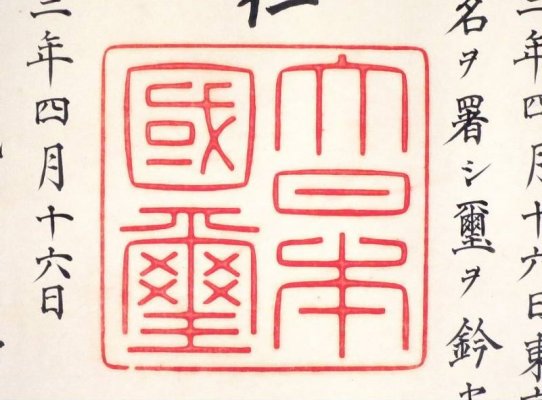 年四月十六日東
名ヲ署シ璽ヲ鈐
仁
大日本
國璽
年四月十六日